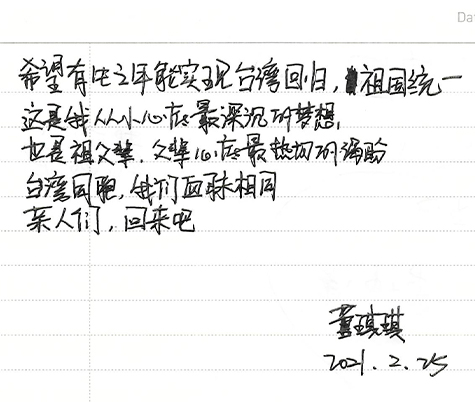 Da
希望有生之年能实现台湾回归，祖国统一
这是我从小心底最深沉的梦想，
也是祖父辈、父辈心底最热切的涌盼
台湾同胞，我们血脉相同
亲人们，回来吧
董琪琪
2021.2.25